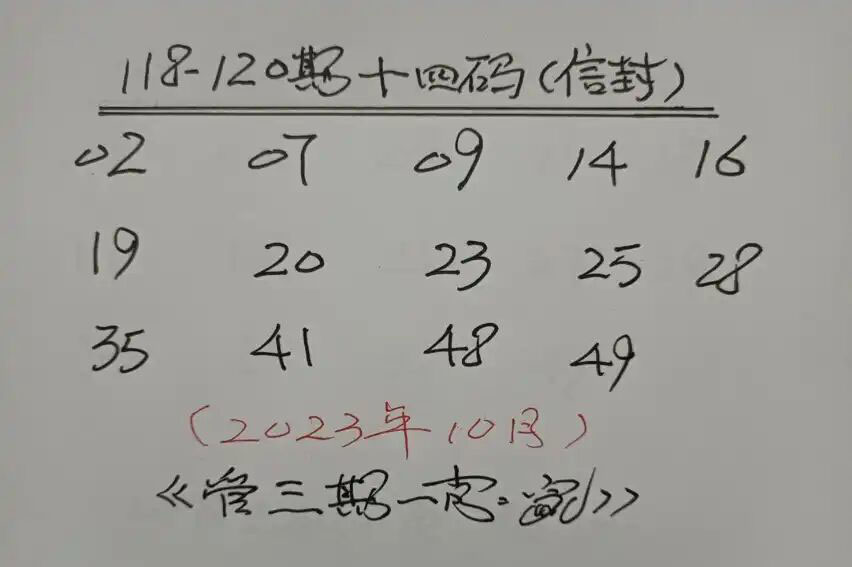 118-120期十四码(信封)
02 07 09 14 16
19 20 23 25 28
35 41 48 49
(2023年10月)
《管三期一肖